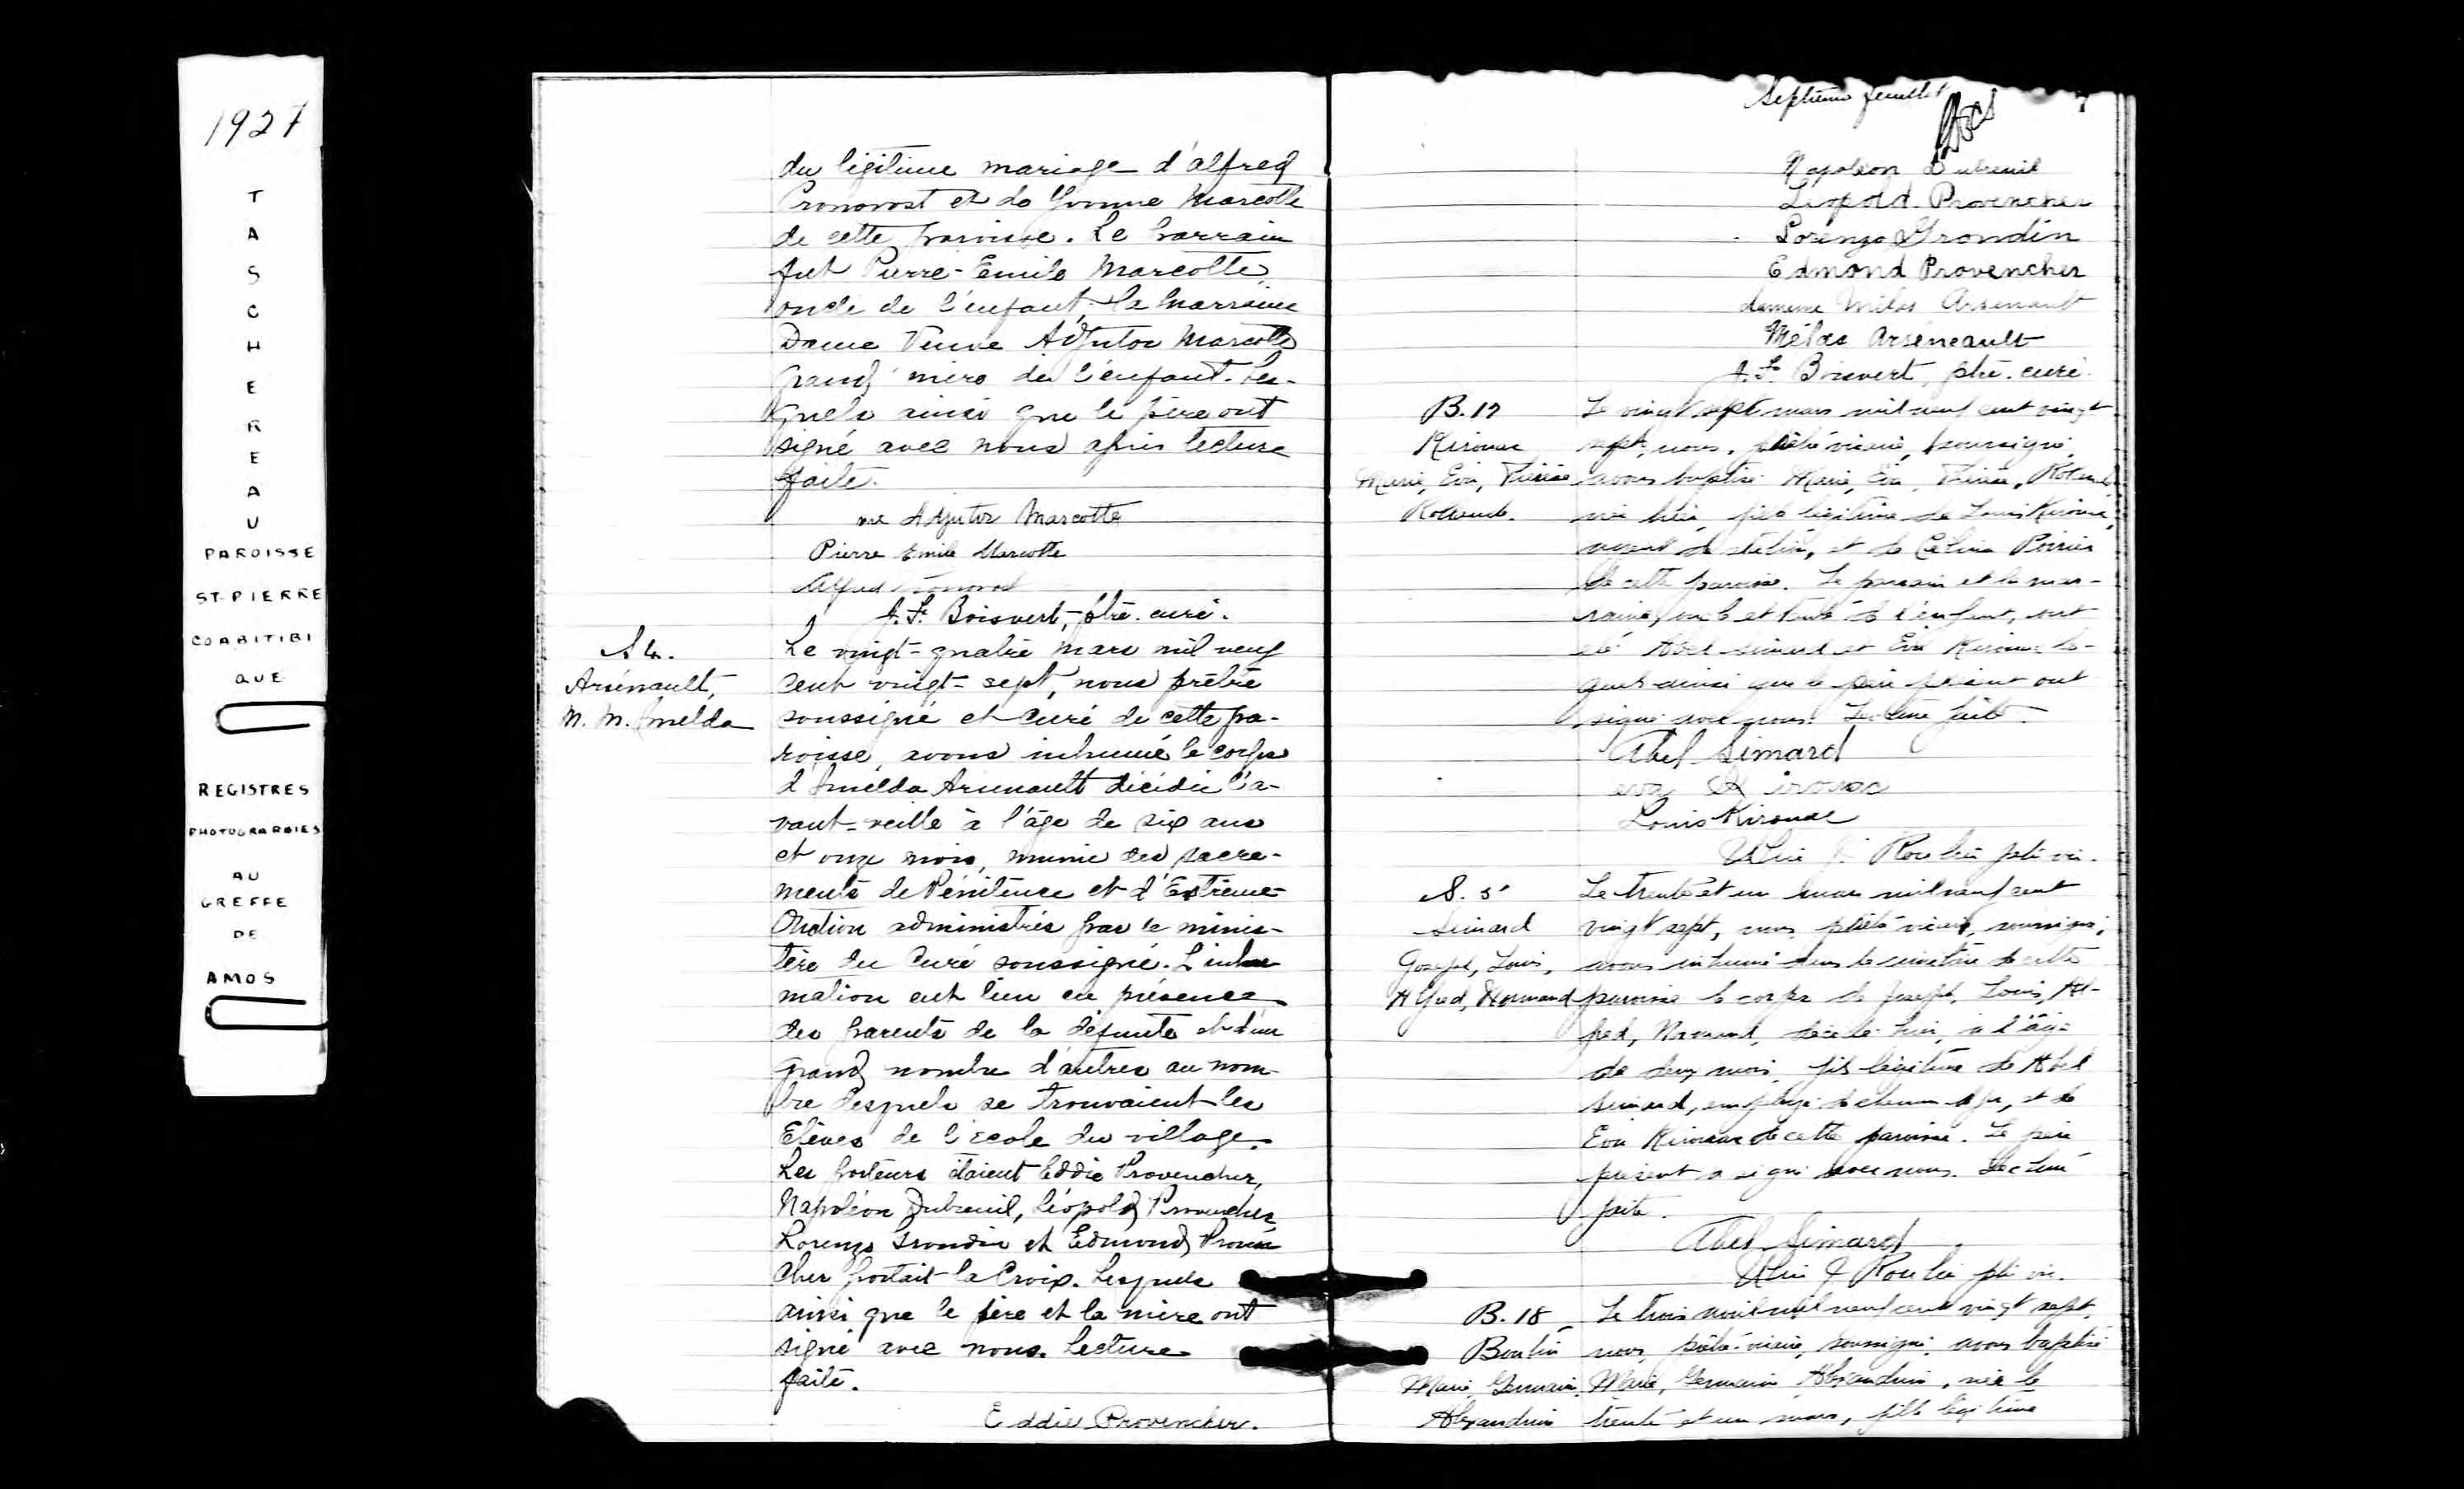 1927
TASCHEREAU
PAROISSE
ST-PIERRE
CO ABITIBI
QUE
REGISTRES
PHOTOGRAPHIES
AU
GREFFE
DE
AMOS
du légitime mariage d'Alfred
Pronovost et de Yvonne Marcotte
de cette paroisse. Le parrain
fut Pierre-Emile Marcotte,
oncle de l'enfant, la marraine
Dame Veuve Adjutor Marcotte
grand'mère de l'enfant. Les-
quels ainsi que le père ont
signé avec nous après lecture
faite.
me Adjutor Marcotte
Pierre Emile Marcotte
Alfred Pronovost
J. F. Boisvert, ptre. curé.
S 4.
Arsénault,
M. M. Imelda
Le vingt-quatre mars mil neuf
cent vingt-sept, nous prêtre
soussigné et curé de cette pa-
roisse, avons inhumé le corps
d'Imelda Arsenault décédée l'a-
vant-veille à l'âge de six ans
et onze mois, munie des sacre-
ments de Pénitence et d'Extrême-
Onction administrés par le minis-
tère du Curé soussigné. L'inhu
mation eut lieu en présence
des parents de la défunte et d'un
grand nombre d'autres au nom-
bre desquels se trouvaient les
Elèves de l'école du village.
Les porteurs étaient Eddie Provencher,
Napoléon Dubreuil, Léopold Provencher
Lorenzo Grondin et Edmond Proven
cher portait la Croix. Lesquels
ainsi que le père et la mère ont
signé avec nous. Lecture
faite.
Eddie Provencher.
Septième feuillet 7
Napoléon Dubreuil
Léopold Provencher
Lorenzo Grondin
Edmond Provencher
Arsenault
Mélas Arseneault
J. F. Boisvert, ptre. curé.
B. 17
Kirouac
Marie, Eva, Thérèse
Rollande.
Le vingt sept mars mil neuf cent vingt
sept, nous, prêtre vicaire, soussigné,
avons baptisé Marie, Eva, Thérèse, Rolande
née hier, fille légitime de Louis Kirouac,
agent de station, et de Célina Poirier
de cette paroisse. Le parrain et la mar-
raine, oncle et tante de l'enfant, ont
été Abel Simard et Eva Kirouac les-
quels ainsi que le père présent ont
signé avec nous. Lecture faite.
Abel Simard
eva Kirouac
Louis Kirouac
J. Roulin ptre vic.
S. 5
Simard
Joseph, Louis,
Alfred, Normand
Le trente et un mars mil neuf cent
vingt sept, nous prêtre vicaire, soussigné,
avons inhumé dans le cimetière de cette
paroisse le corps de Joseph, Louis, Al-
fred, Normand, décédé hier, à l'âge
de deux mois, fils légitime de Abel
Simard, employé de chemin de fer, et de
Eva Kirouac de cette paroisse. Le père
présent a signé avec nous. Lecture
faite.
Abel Simard
J. Roulin ptre vic.
B. 18
Boutin
Marie, Germaine,
Alexandrine
Le trois avril mil neuf cent vingt sept,
nous, prêtre-vicaire, soussigné, avons baptisé
Marie, Germaine Alexandrine, née le
trente et un mars, fille légitime